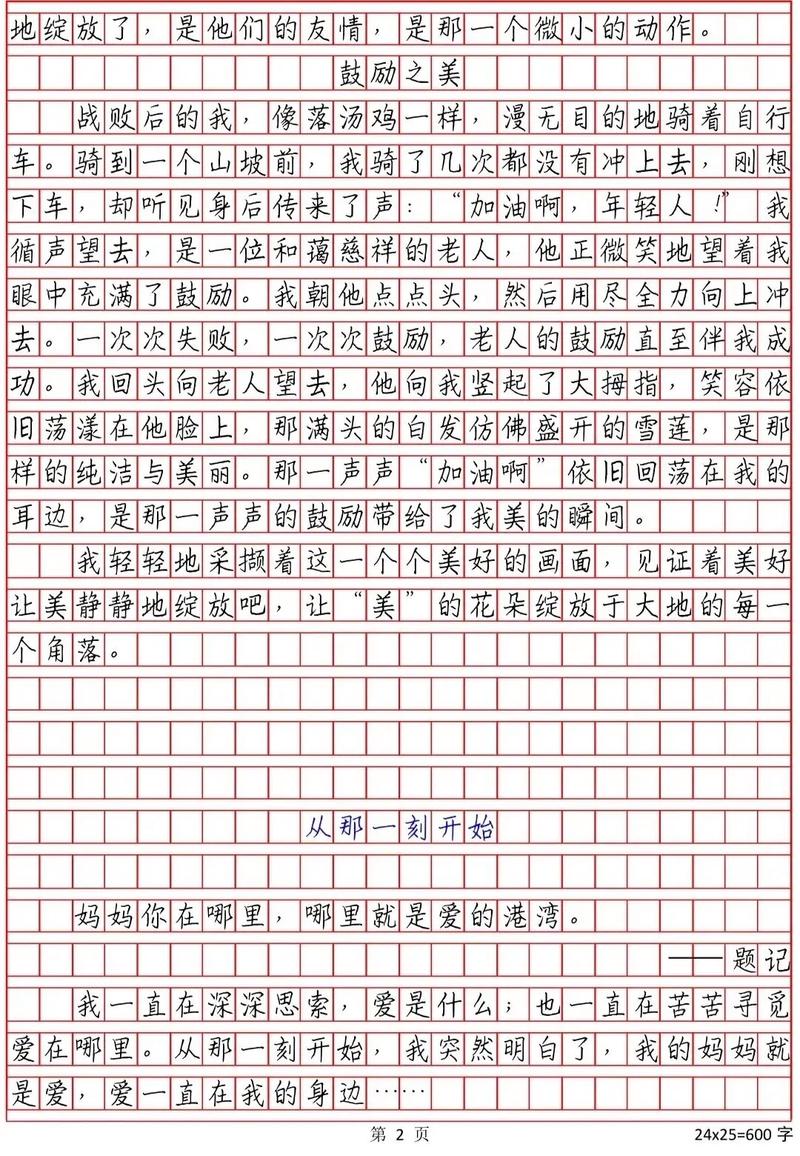 地绽放了，是他们的友情，是那一个微小的动作。
鼓励之美
战败后的我，像落汤鸡一样，漫无目的地骑着自行
车。骑到一个山坡前，我骑了几次都没有冲上去，刚想
下车，却听见身后传来了声：“加油啊，年轻人！”我
循声望去，是一位和蔼慈祥的老人，他正微笑地望着我
眼中充满了鼓励。我朝他点点头，然后用尽全力向上冲
去。一次次失败，一次次鼓励，老人的鼓励直至伴我成
功。我回头向老人望去，他向我竖起了大拇指，笑容依
旧荡漾在他脸上，那满头的白发仿佛盛开的雪莲，是那
样的纯洁与美丽。那一声声“加油啊”依旧回荡在我的
耳边，是那一声声的鼓励带给了我美的瞬间。
我轻轻地采撷着这一个个美好的画面，见证着美好
让美静静地绽放吧，让“美”的花朵绽放于大地的每一
个角落。
从那一刻开始
妈妈你在哪里，哪里就是爱的港湾。
——题记
我一直在深深思索，爱是什么；也一直在苦苦寻觅
爱在哪里。从那一刻开始，我突然明白了，我的妈妈就
是爱，爱一直在我的身边……
第 2 页
24x25=600 字